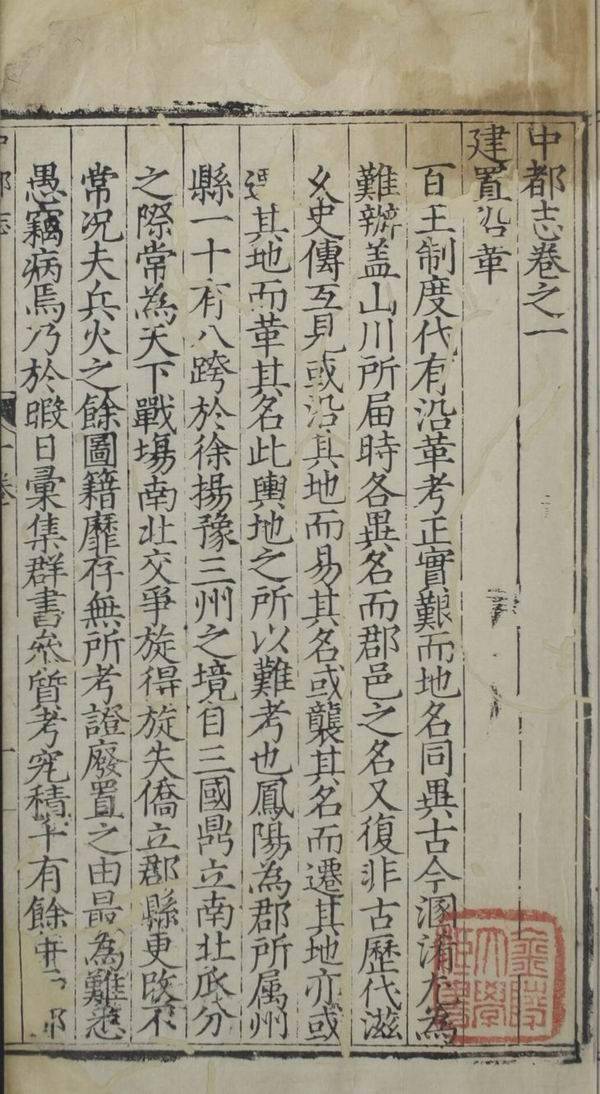 中都志卷之一
建置沿革
百王制度代有沿革考正實艱而地名同異古今溷淆尤為
難辦盖山川所届時各異名而郡邑之名又復非古歷代滋
久史傳互見或沿其地而易其名或襲其名而遷其地亦或
其地而革其名此輿地之所以難考也鳳陽為郡所属州
縣一十有八跨於徐揚豫三州之境自三國鼎立南北瓜分
之際常為天下戰塲南北交爭旋得旋失僑立郡縣更改不
常况夫兵火之餘圖籍靡存無所考證廢置之由最為難悉
愚竊病焉乃於暇日彙集群書叅質考究積年有餘
中都志
一卷
一
金陵大學